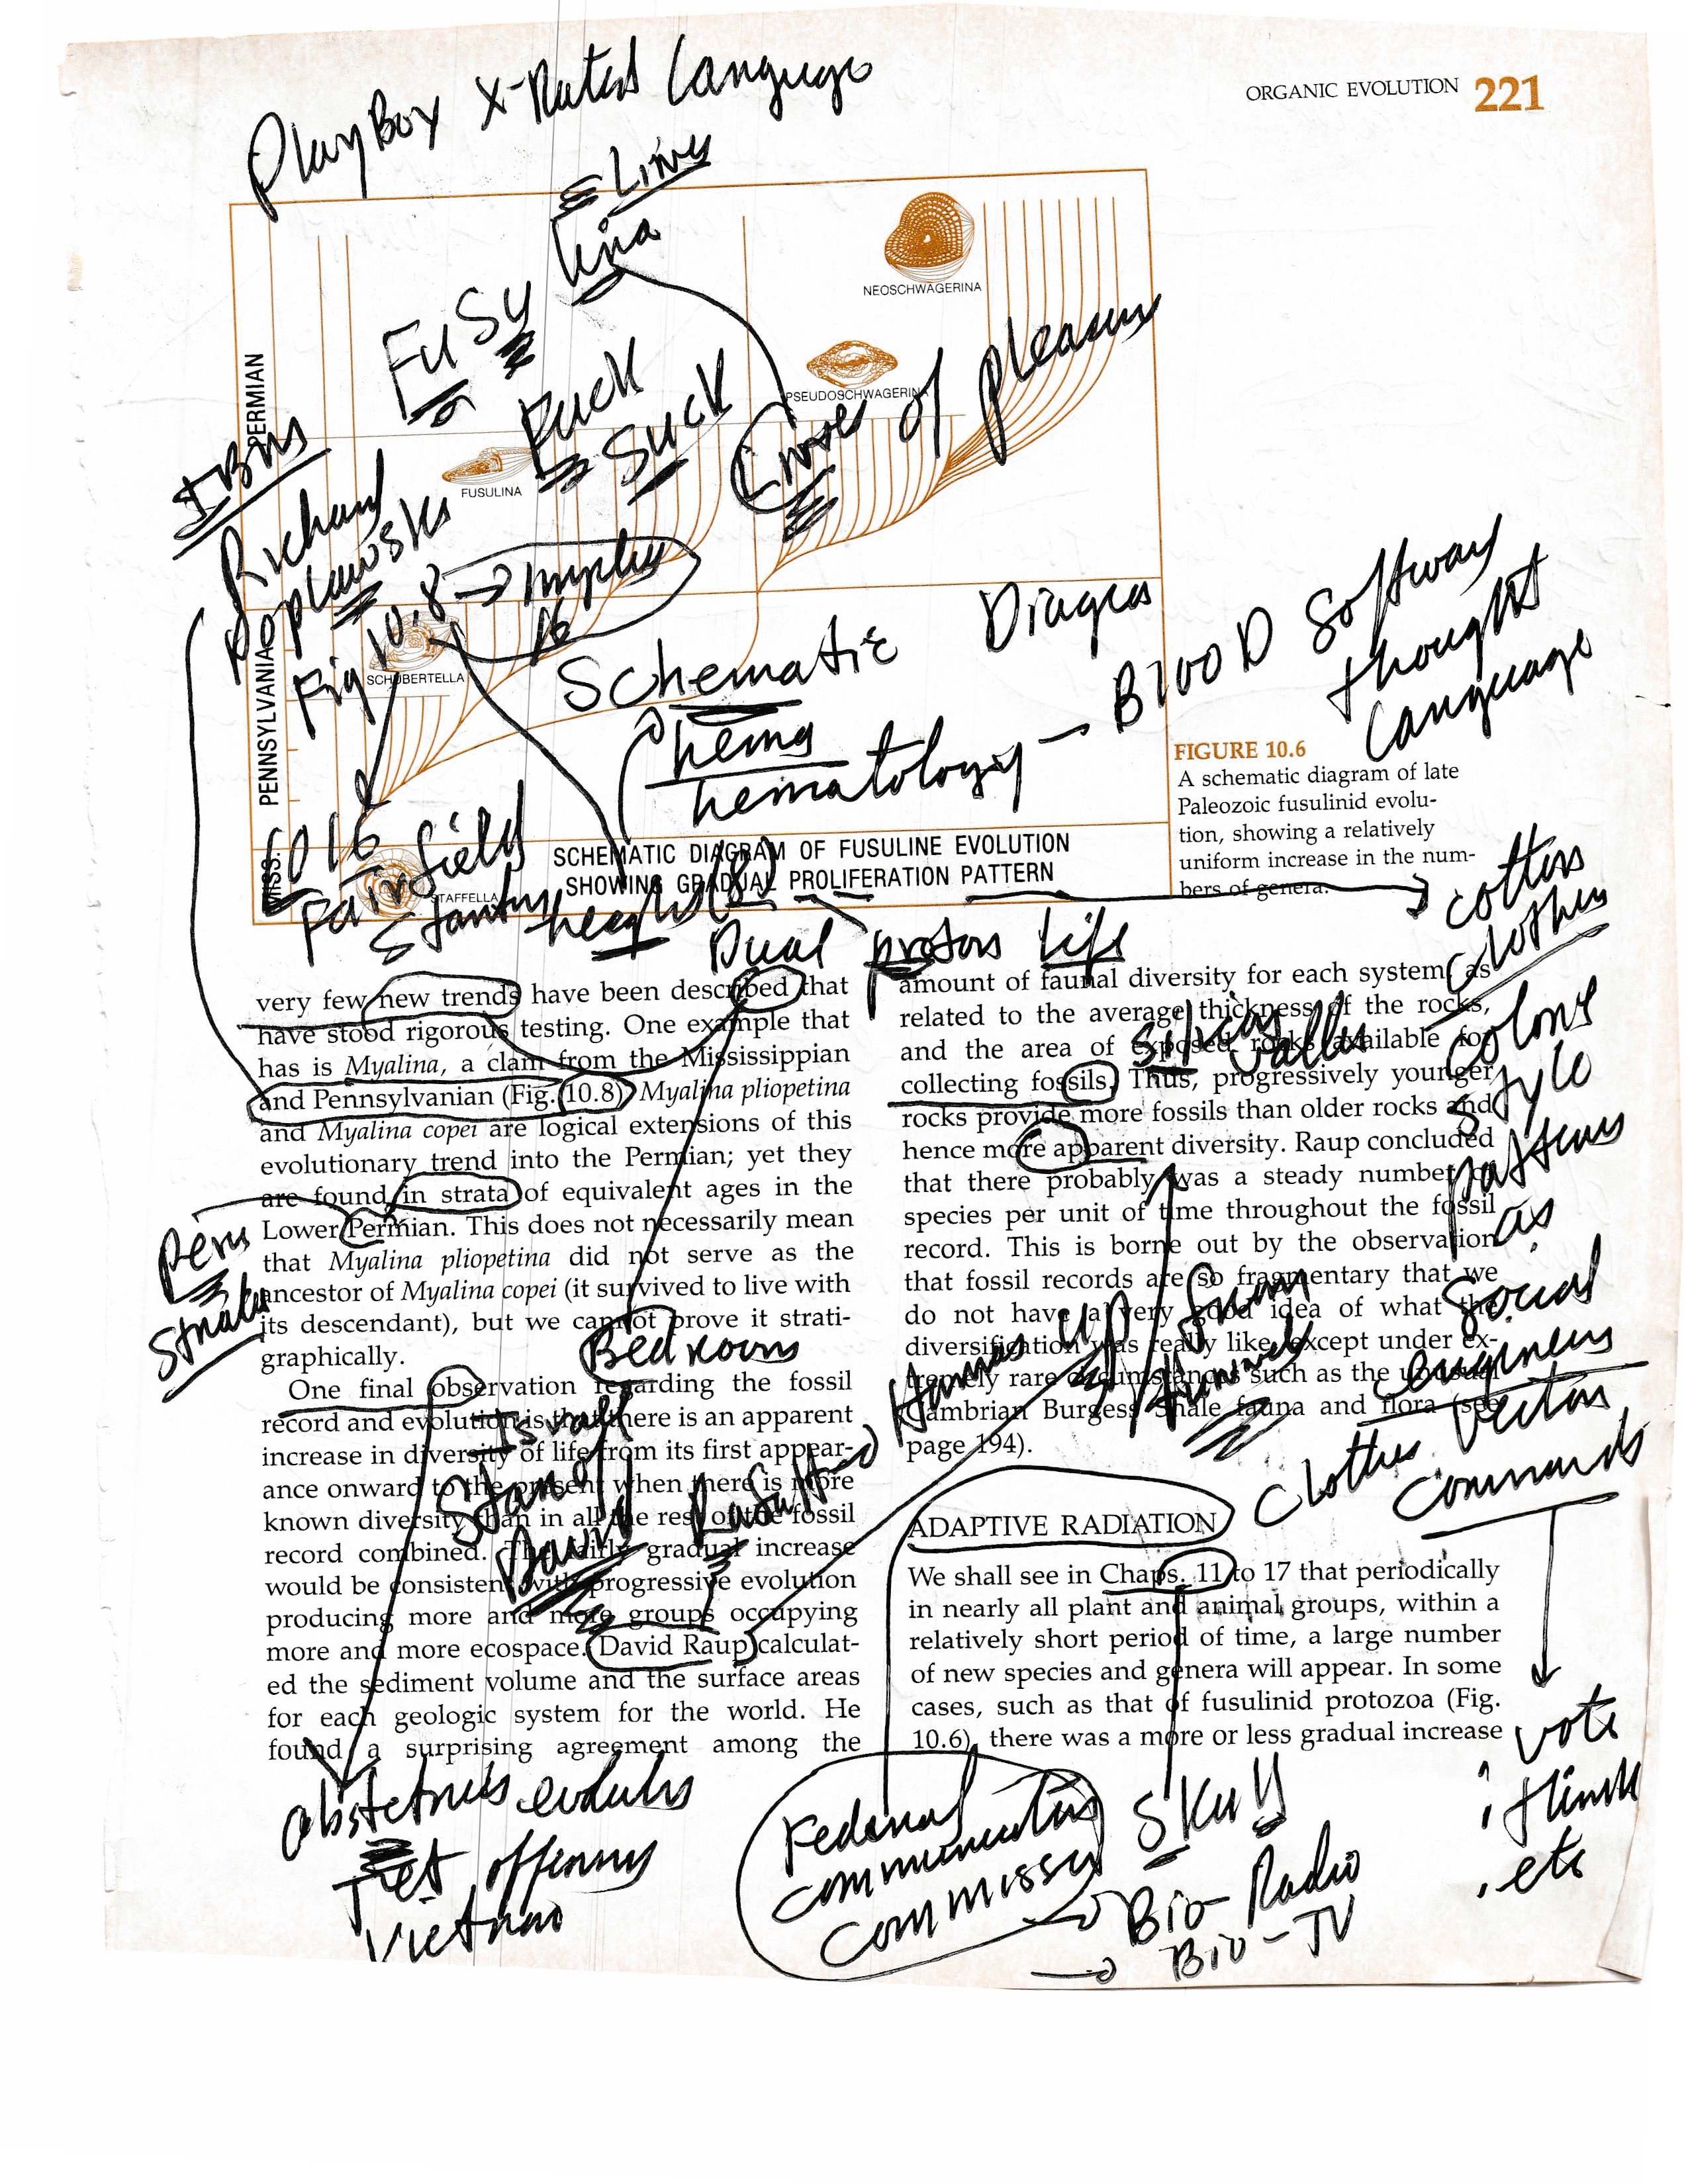 ORGANIC EVOLUTION 221
PlayBoy X-Rated Language
Lines
lina
FuSu
NEOSCHWAGERINA
PERMIAN
Fuck
Suck
PSEUDOSCHWAGERINA
Lines of pleasure
FUSULINA
IBM
Richard
Poplawski
Fig 10.8 → implies
16
SCHUBERTELLA
PENNSYLVANIAN
Schematic Diagra
hema
hematology — Blood Software
thought
Language
FIGURE 10.6
A schematic diagram of late
Paleozoic fusulinid evolu-
tion, showing a relatively
uniform increase in the num-
bers of genera.
MISS.
6016
Fairfield
STAFFELLA
SCHEMATIC DIAGRAM OF FUSULINE EVOLUTION
SHOWING GRADUAL PROLIFERATION PATTERN
height (8)
Dual proton Life
very few new trends have been described that
have stood rigorous testing. One example that
has is Myalina, a clam from the Mississippian
and Pennsylvanian (Fig. 10.8). Myalina pliopetina
and Myalina copei are logical extensions of this
evolutionary trend into the Permian; yet they
are found in strata of equivalent ages in the
Lower Permian. This does not necessarily mean
that Myalina pliopetina did not serve as the
ancestor of Myalina copei (it survived to live with
its descendant), but we cannot prove it strati-
graphically.
Penis
Strata
Bedrooms
One final observation regarding the fossil
record and evolution is that there is an apparent
increase in diversity of life from its first appear-
ance onward to the present when there is more
known diversity than in all the rest of the fossil
record combined. The fairly gradual increase
would be consistent with progressive evolution
producing more and more groups occupying
more and more ecospace. David Raup calculat-
ed the sediment volume and the surface areas
for each geologic system for the world. He
found a surprising agreement among the
Israel
Star of
David
obstetrics
Tet offensive
Vietnam
amount of faunal diversity for each system, as
related to the average thickness of the rocks,
and the area of exposed rocks available for
collecting fossils. Thus, progressively younger
rocks provide more fossils than older rocks and
hence more apparent diversity. Raup concluded
that there probably was a steady number of
species per unit of time throughout the fossil
record. This is borne out by the observation
that fossil records are so fragmentary that we
do not have a very good idea of what the
diversification was really like, except under ex-
tremely rare circumstances such as the unusual
Cambrian Burgess Shale fauna and flora (see
page 194).
Silicon Valley
Hamas up from
cotton
clothes
colors
style
patterns
as
Social
engineers
Clothes Vector
Commands
vote
think
etc
ADAPTIVE RADIATION
We shall see in Chaps. 11 to 17 that periodically
in nearly all plant and animal groups, within a
relatively short period of time, a large number
of new species and genera will appear. In some
cases, such as that of fusulinid protozoa (Fig.
10.6), there was a more or less gradual increase
Federal
communication
commission
Skull
→ Bio-Radio
→ Bio-TV